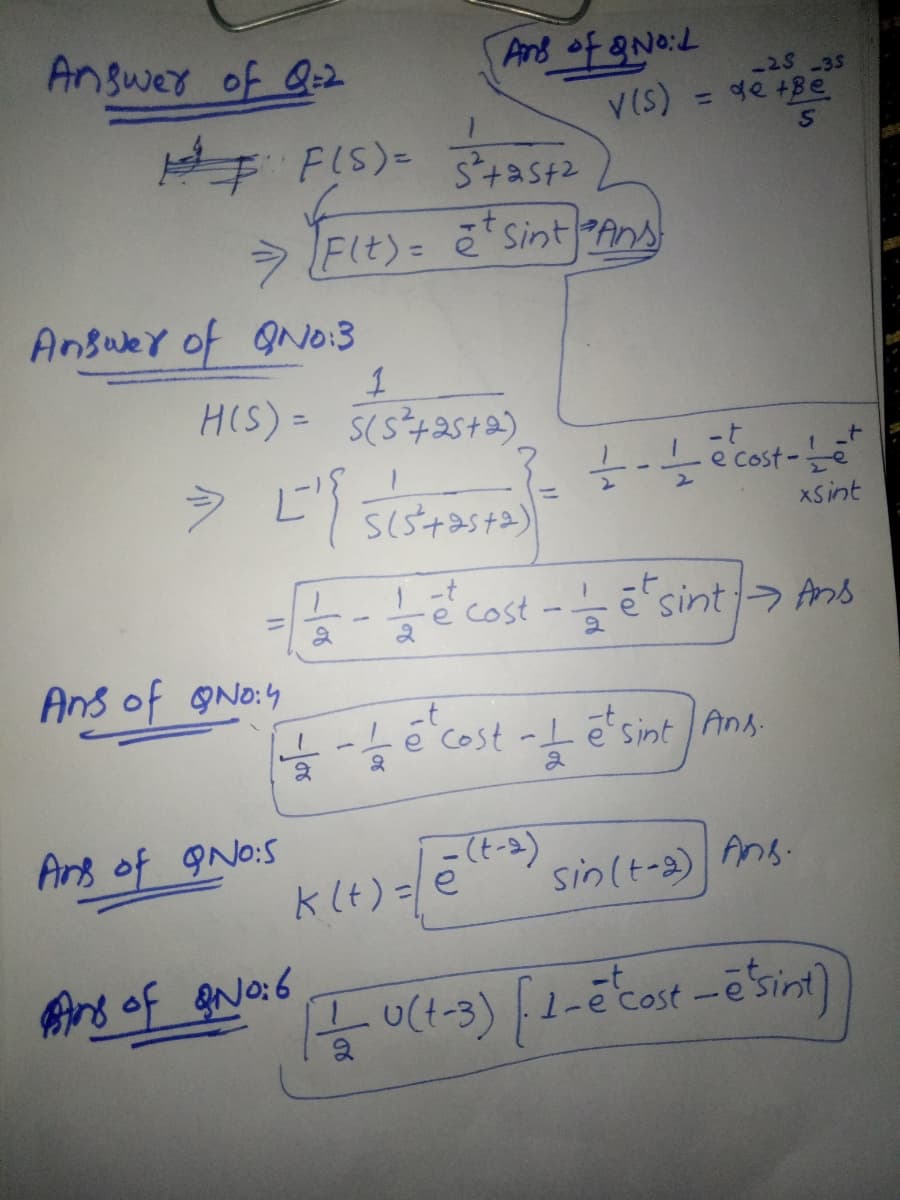 Answer of Q=2
Ans of QNo:1
V(S) = αe^-2S + βe^-3S / S
F(S) = 1 / S²+2S+2
⇒ F(t) = e^-t sint → Ans
Answer of QNo:3
H(S) = 1 / S(S²+2S+2)
⇒ L^-1 { 1 / S(S²+2S+2) } = 1/2 - 1/2 e^-t cost - 1/2 e^-t
×sint
= 1/2 - 1/2 e^-t cost - 1/2 e^-t sint → Ans
Ans of QNo:4
1/2 - 1/2 e^-t cost - 1/2 e^-t sint Ans.
Ans of QNo:5
K(t) = e^-(t-2) sin(t-2) Ans.
Ans of QNo:6
1/2 U(t-3) [1-e^-t cost - e^-t sint)